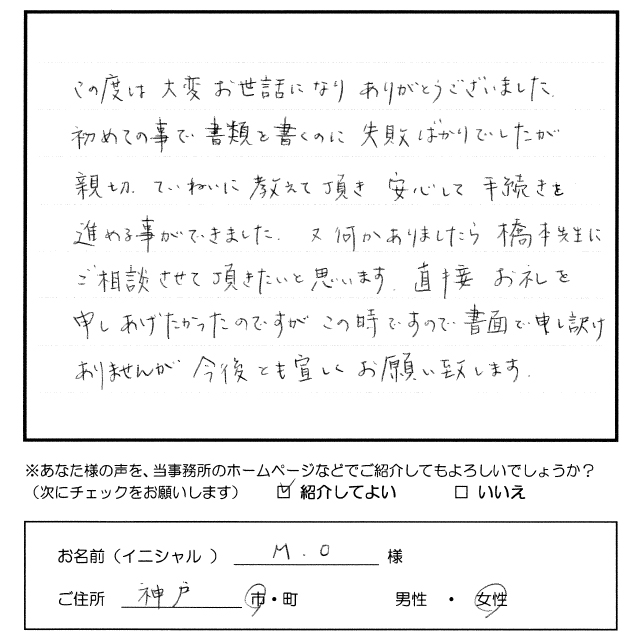 この度は 大変 お世話になり ありがとうございました.
初めての事で 書類を書くのに 失敗ばかりでしたが
親切、ていねいに 教えて頂き 安心して 手続きを
進める事ができました. 又何かありましたら 橋本先生に
ご相談させて頂きたいと思います. 直接 お礼を
申しあげたかったのですが この時ですので 書面で申し訳け
ありませんが 今後とも宜しくお願い致します.
※あなた様の声を、当事務所のホームページなどでご紹介してもよろしいでしょうか？
（次にチェックをお願いします） ☑ 紹介してよい □ いいえ
お名前（イニシャル ） M.O 様
ご住所 神戸 市・町 男性 ・ 女性